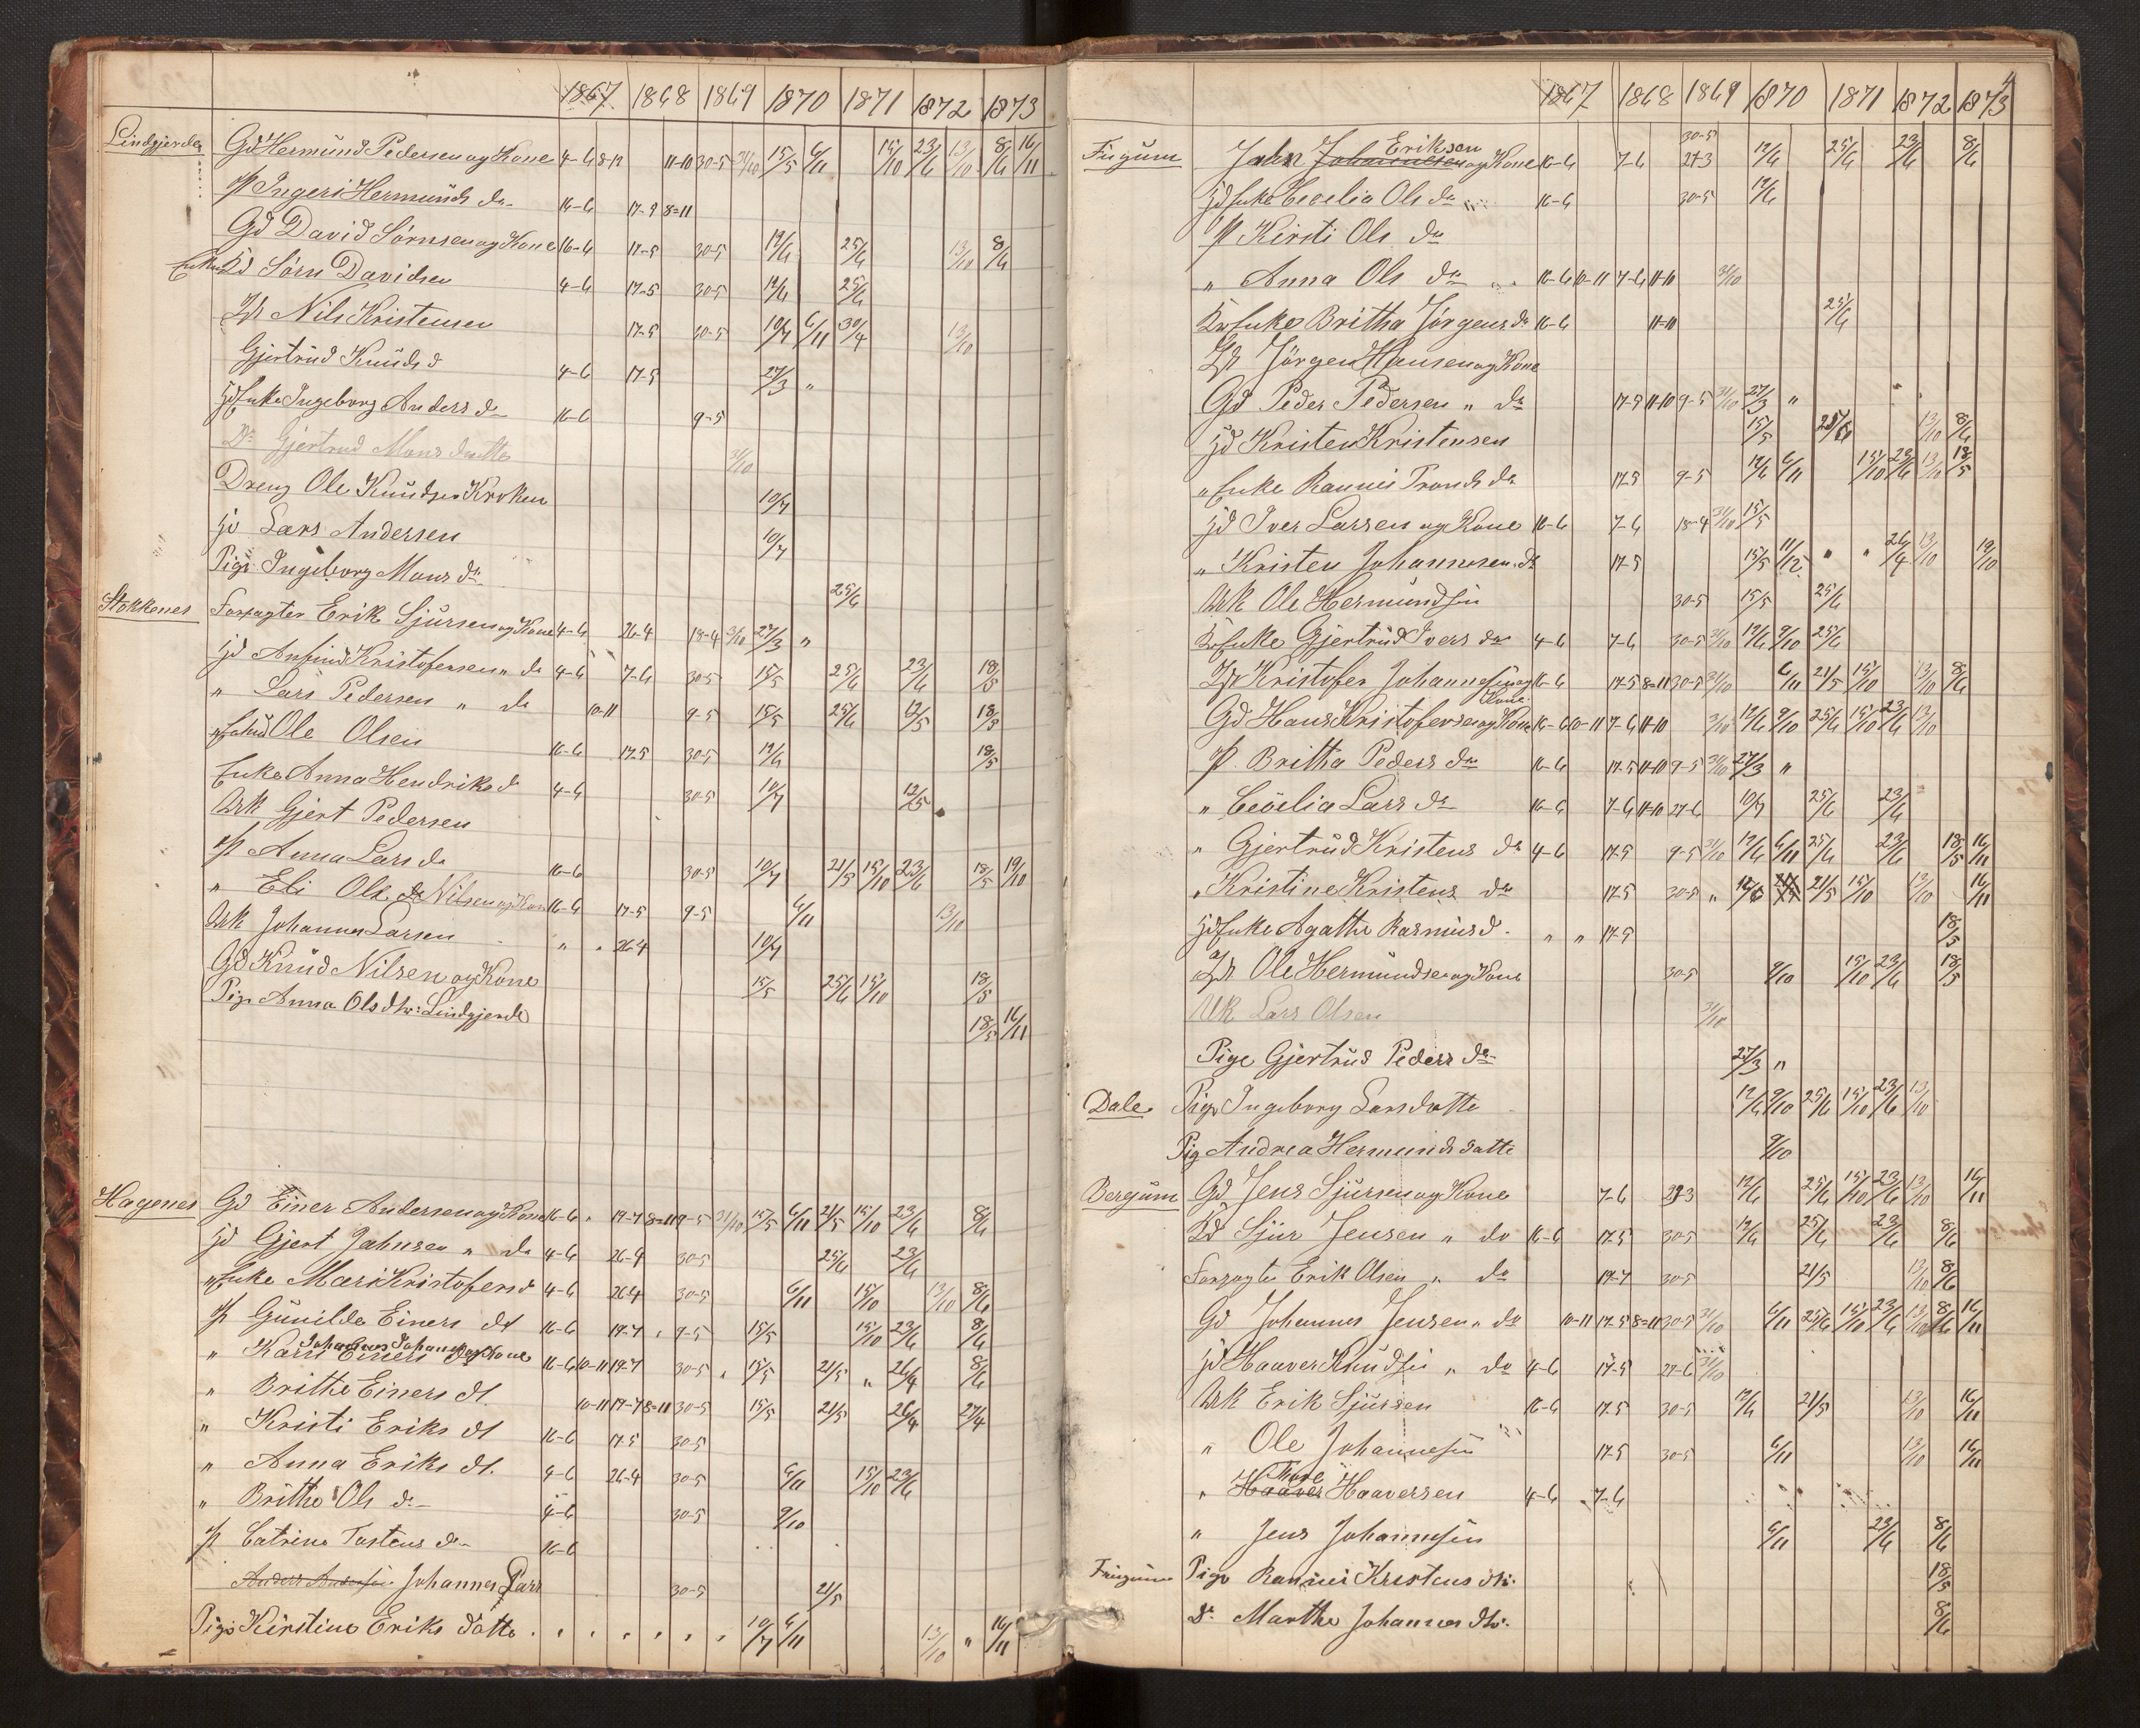 1867 1868 1869 1870 1871 1872 1873
Lindgjerde Gd Hermund Pedersen og Kone 4-6 8-12 11-10 30-5 31/10 15/5 6/11 15/10 23/6 13/10 8/6 16/11
p Ingeri Hermunds da 16-6 17-9 8-11
Gd David Sørnsen og Kone 16-6 17-5 30-5 12/6 25/6 13/10 8/6
Enkem Kd Sørn Davidsen 4-6 17-5 30-5 12/6 25/6
Nils Kristensen 17-5 30-5 10/7 6/11 30/4 13/10
Gjertrud Knuds d 4-6 17-5 27/3 "
Enke Ingeborg Anders da 16-6 9-5
Do Gjertrud Mons datte 31/10
Dreng Ole Knudsen Kroken 10/7
Lars Andersen 10/7
Pige Ingeborg Mons da 25/6
Stokkenes Forpagter Erik Sjursen og Kone 4-6 26-4 18-4 31/10 27/3 "
Anfind Kristofersen " do 4-6 7-6 30-5 15/5 25/6 23/6 18/5
" Lars Pedersen " do 10-11 9-5 15/5 25/6 12/5 18/5
Ole Olsen 16-6 17-5 30-5 12/6 18/5
Enke Anna Hendriks d 4-6 30-5 10/7 12/5
Uk Gjert Pedersen
p Anna Lars da 16-6 30-5 10/7 21/5 15/10 23/6 18/5 19/10
" Eli Ols Nilsen og Kone 16-6 17-5 9-5 6/11 13/10
Uk Johannes Larsen " " 26-4 10/7
Gd Knud Nilsen og Kone 15/5 25/6 15/10 18/5
Pige Anna Ols dtr: Lindgjerde 18/5 16/11
Hagenes Gd Einer Andersen og Kone 16-6 " 19-7 8-11 9-5 31/10 15/5 6/11 21/5 15/10 23/6 8/6
Gjert Jahnsen " do 4-6 26-4 30-5 25/6 23/6
" Enke Mari Kristofers d 4-6 26-4 30-5 6/11 15/10 13/10 8/6
p Gunilde Einers dt 16-6 19-7 9-5 15/5 15/10 23/6 8/6
Johannes Johannes og Kone
" Kari Einers dt 16-6 10-11 19-7 30-5 " 15/5 21/5 " 26/4 8/6
" Brithe Einers dt 10-11 17-7 8-11 30-5 15/5 21/5 26/4 27/4
" Kristi Eriks dt 16-6 17-5 30-5
" Anna Eriks dt. 4-6 26-4 30-5 6/11 15/10 23/6
" Brithe Ols da 4-6 30-5 9/10
p Catrine Tostens da 16-6
Anders Andersen Johannes Lars 30-5 21/5
Pige Kirstine Eriks datte 10/7 6/11 13/10 " 16/11
4
1867 1868 1869 1870 1871 1872 1873
Eriksen 30-5
Fugum Jahn Johannesen og Kone 16-6 7-6 27-3 12/6 25/6 23/6 8/6
Enke Cecelia Ols da 16-6 30-5 12/6
p Kirsti Ols da
" Anna Ols da 16-6 10-11 7-6 11-10 31/10
Enke Britha Jørgens da 16-6 11-10 25/6
Jørgen Hansen og Kone
Gd Peder Pedersen " do 17-5 11-10 9-5 31/10 27/3 "
Kristen Kristensen 15/5 25/6 13/10 8/6
" Enke Rannei Tronds da 17-5 9-5 12/6 6/11 15/10 23/6 13/10 18/5
Iver Larsen og Kone 16-6 7-6 18-4 31/10 15/5
" Kristen Johannesen do 17-5 15/5 11/12 " " 26/4 13/10 19/10
Uk Ole Hermundsen 30-5 15/5 25/6
Enke Gjertrud Ivers da 4-6 7-6 30-5 31/10 12/6 9/10 25/6
Kristofer Johannesen og Kone 16-6 17-5 8-11 30-5 31/10 6/11 21/5 15/10 13/10 8/6
Gd Hans Kristofersen og Kone 16-6 10-11 7-6 11-10 31/10 12/6 9/10 25/6 15/10 23/6 13/10
p. Britha Peders da 16-6 17-5 11-10 9-5 31/10 27/3 "
" Cecelia Lars da 16-6 7-6 11-10 27-6 10/7 25/6 23/6
" Gjertrud Kristens da 4-6 17-5 9-5 31/10 12/6 6/11 25/6 23/6 18/5 16/11
" Kristine Kristens da 17-5 30-5 " 12/6 21/5 15/10 13/10 16/11
Enke Agathe Rasmus d. " " 17-5 18/5
Ole Hermundsen og Kone 30-5 9/10 15/10 23/6 18/5
Uk Lars Olsen 31/10
Pige Gjertrud Peders da 27/3 "
Dale Pige Ingeborg Larsdatte 12/6 9/10 25/6 15/10 23/6 13/10
Pig Andrea Hermunds datte 9/10
Bergum Gd Jens Sjursen og Kone 7-6 27-3 12/6 25/6 15/10 23/6 13/10 16/11
Kd Sjur Jensen " do 16-6 17-5 30-5 12/6 25/6 23/6 8/6
Forpagte Erik Olsen " do 19-7 30-5 21/5 13/10 8/6
Gd Johannes Jensen " do 10-11 17-5 8-11 30-5 31/10 6/11 25/6 15/10 23/6 13/10 8/6 16/11
Haaver Knudsen " do 4-6 17-5 27-6 31/10
Uk Erik Sjursen 16-6 17-5 30-5 12/6 21/5 13/10 16/11
" Ole Johannesen 17-5 30-5 6/11 13/10 16/11
Ture
" Haaver Haaversen 4-6 7-6
" Jens Johannesen 6/11 23/6 8/6
Fuugum Pige Rannei Kristens dtr. 18/5
Do Marthe Johannes dtr. 8/6